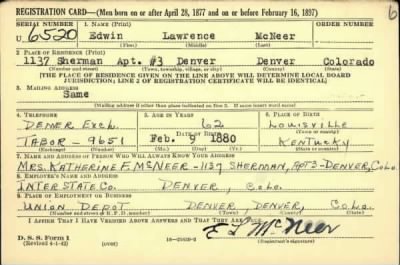 REGISTRATION CARD—(Men born on or after April 28, 1877 and on or before February 16, 1897)
SERIAL NUMBER 1. NAME (Print) ORDER NUMBER
U 6520 Edwin Lawrence McNeer
(First) (Middle) (Last)
2. PLACE OF RESIDENCE (Print)
1137 Sherman Apt. #3 Denver Denver Colorado
(Number and street) (Town, township, village, or city) (County) (State)
[THE PLACE OF RESIDENCE GIVEN ON THE LINE ABOVE WILL DETERMINE LOCAL BOARD
JURISDICTION; LINE 2 OF REGISTRATION CERTIFICATE WILL BE IDENTICAL]
3. MAILING ADDRESS
Same
[Mailing address if other than place indicated on line 2. If same insert word same]
4. TELEPHONE 5. AGE IN YEARS 6. PLACE OF BIRTH
DENER Exch. 62 LOUISVILLE
DATE OF BIRTH (Town or county)
TABOR - 9651 Feb. 9 1880 KENTUCKY
(Exchange) (Number) (Mo.) (Day) (Yr.) (State or country)
7. NAME AND ADDRESS OF PERSON WHO WILL ALWAYS KNOW YOUR ADDRESS
MRS. KATHERINE F. MCNEER - 1137 SHERMAN, APT 3 - DENVER, COLO.
8. EMPLOYER'S NAME AND ADDRESS
INTERSTATE CO. DENVER, COLO.
9. PLACE OF EMPLOYMENT OR BUSINESS
UNION DEPOT DENVER, DENVER, COLO.
(Number and street or R. F. D. number) (Town) (County) (State)
I AFFIRM THAT I HAVE VERIFIED ABOVE ANSWERS AND THAT THEY ARE TRUE.
D. S. S. Form 1
(Revised 4-1-42) (over) E L McNeer
(Registrant's signature)